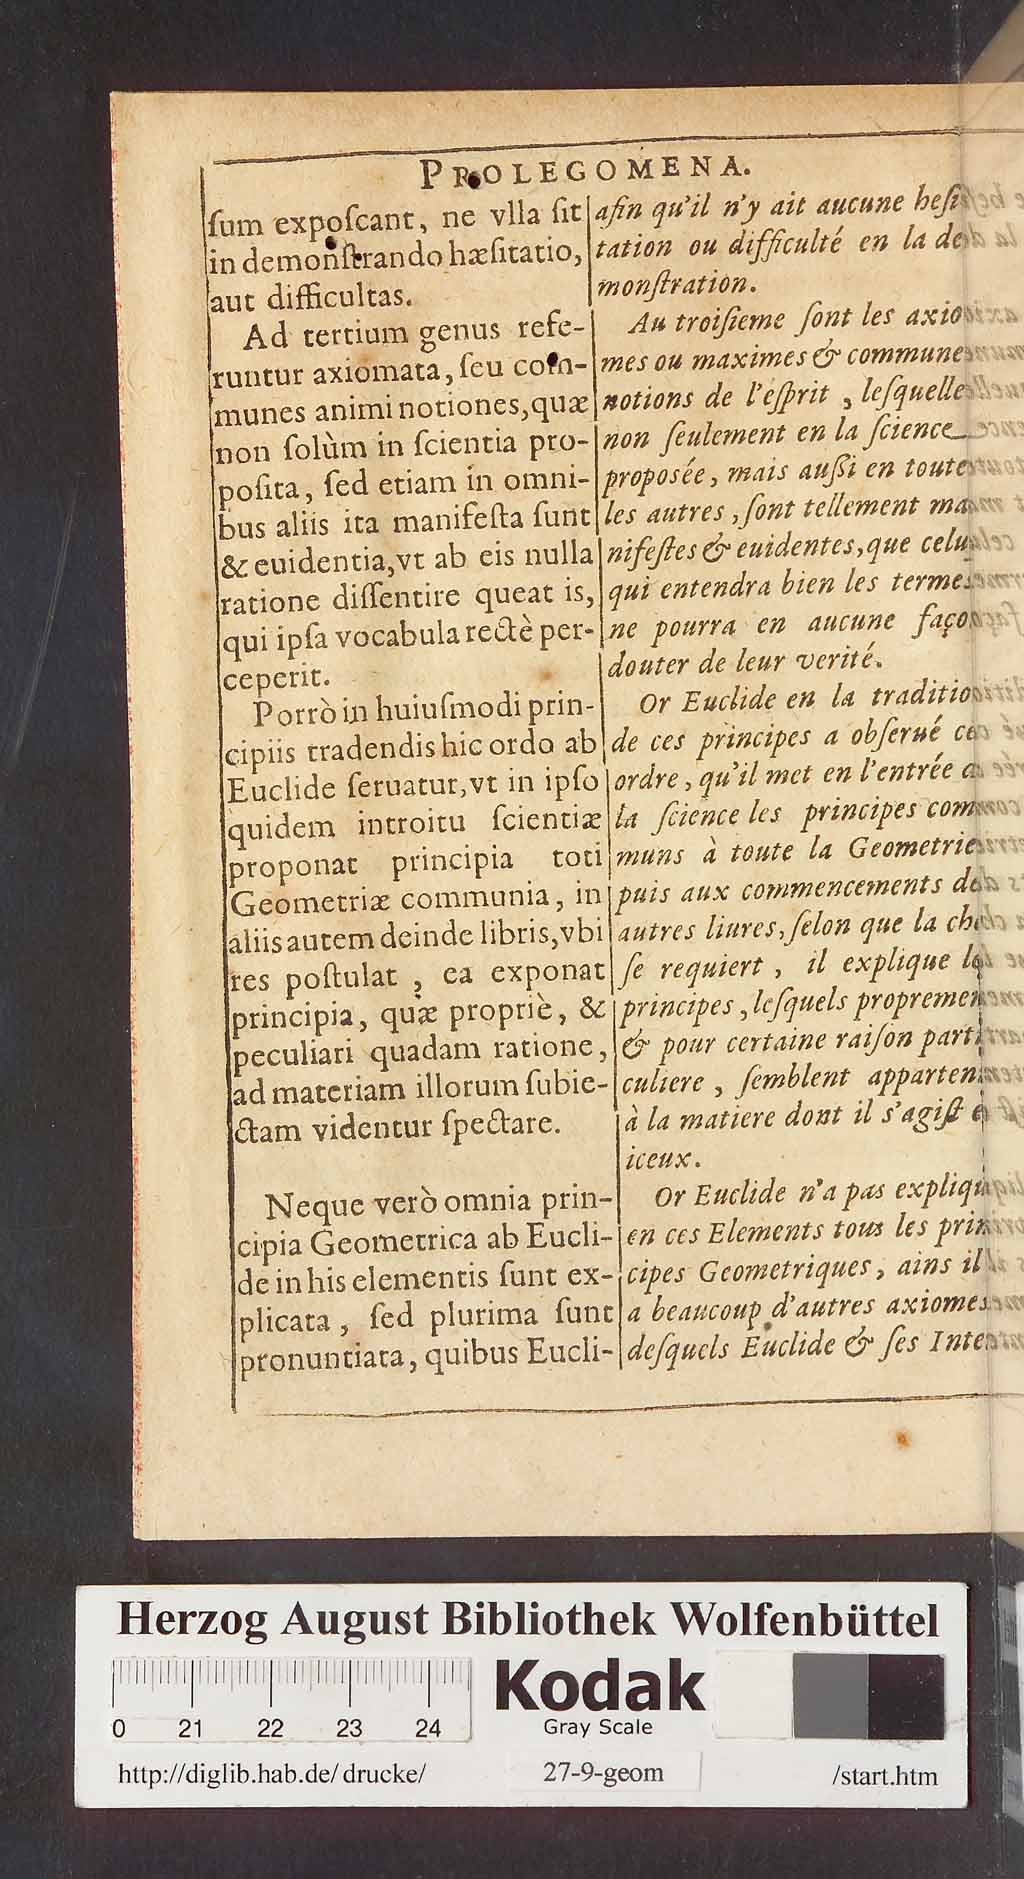 PROLEGOMENA.
ſum expoſcant, ne vlla ſit
in demonſtrando hæſitatio,
aut difficultas.
Ad tertium genus refe-
runtur axiomata, ſeu com-
munes animi notiones, quæ
non ſolùm in ſcientia pro-
poſita, ſed etiam in omni-
bus aliis ita manifeſta ſunt
& euidentia, vt ab eis nulla
ratione diſſentire queat is,
qui ipſa vocabula rectè per-
ceperit.
Porrò in huiuſmodi prin-
cipiis tradendis hic ordo ab
Euclide ſeruatur, vt in ipſo
quidem introitu ſcientiæ
proponat principia toti
Geometriæ communia, in
aliis autem deinde libris, vbi
res poſtulat, ea exponat
principia, quæ propriè, &
peculiari quadam ratione,
ad materiam illorum ſubie-
ctam videntur ſpectare.
Neque verò omnia prin-
cipia Geometrica ab Eucli-
de in his elementis ſunt ex-
plicata, ſed plurima ſunt
pronuntiata, quibus Eucli-
afin qu'il n'y ait aucune heſi
tation ou difficulté en la de
monſtration.
Au troiſieme ſont les axio
mes ou maximes & commune
notions de l'eſprit, leſquelle
non ſeulement en la ſcience
proposée, mais auſſi en toute
les autres, ſont tellement ma
nifeſtes & euidentes, que celu
qui entendra bien les termes
ne pourra en aucune faço
douter de leur verité.
Or Euclide en la traditio
de ces principes a obſerué ce
ordre, qu'il met en l'entrée
la ſcience les principes com
muns à toute la Geometrie
puis aux commencements de
autres liures, ſelon que la ch
ſe requiert, il explique le
principes, leſquels propremen
& pour certaine raiſon parti
culiere, ſemblent apparten
à la matiere dont il s'agiſt
iceux.
Or Euclide n'a pas expliqu
en ces Elements tous les prin
cipes Geometriques, ains il
a beaucoup d'autres axiomes
deſquels Euclide & ſes Inte
Herzog August Bibliothek Wolfenbüttel
0 21 22 23 24
Kodak
Gray Scale
http://diglib.hab.de/drucke/ 27-9-geom /start.htm